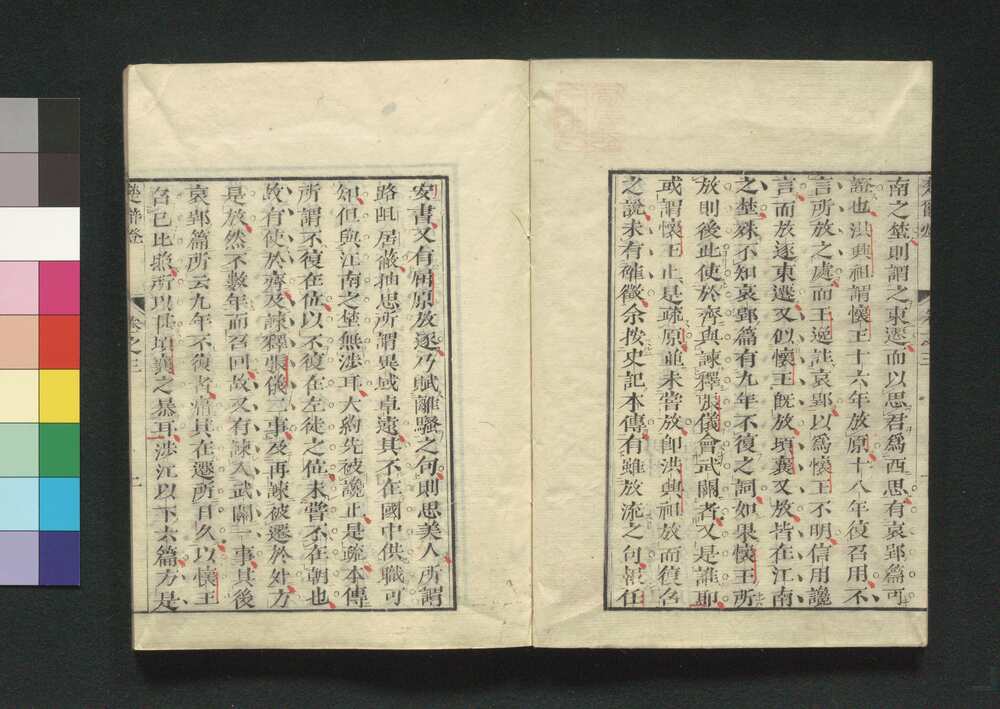 南之埜則謂之東遷而以思君爲西思有哀郢篇可
證也洪興祖謂懷王十六年放原十八年復召用不
言所放之處而王逸註哀郢以爲懷王不明信用讒
言而放逐東遷又似懷王旣放頃襄又放皆在江南
之埜殊不知哀郢篇有九年不復之詞如果懷王所
放則後此使於齊與諫釋張儀會武關者又是誰耶
或謂懷王止是疏原並未嘗放卽洪興祖放而復召
之說未有確徵余按史記本傳有雖放流之句報任
安書又有屈原放逐乃賦離騷之句則思美人所謂
路阻居蔽抽思所謂異域卓遠其不在國中供職可
知但與江南之埜無涉耳大約先被讒止是疏本傳
所謂不復在位以不復在左徒之位未嘗不在朝也
故有使於齊及諫釋張儀二事及再諫被遷於外方
是放然不數年而召回故又有諫入武關一事其後
哀郢篇所云九年不復者痛其在遷所日久以懷王
召已比照所以甚頃襄之暴耳涉江以下六篇方是
楚辭燈
卷之三